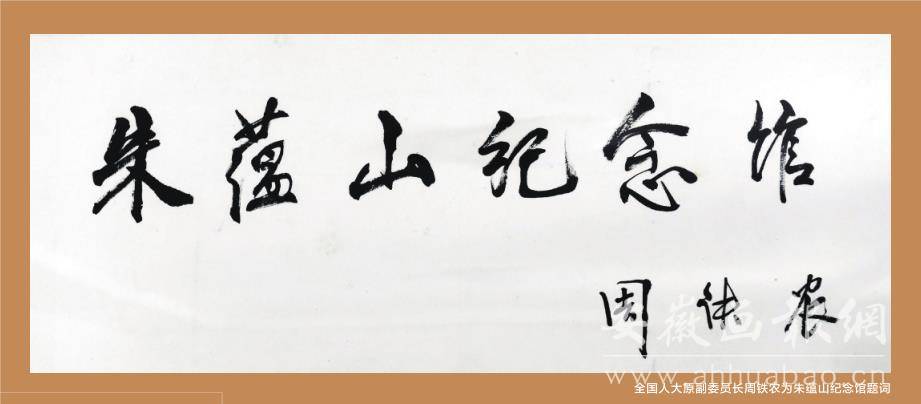 朱蕴山纪念馆
周铁农
安徽画报網
www.ahhuabao.cn
全国人大原副委员长周铁农为朱蕴山纪念馆题词